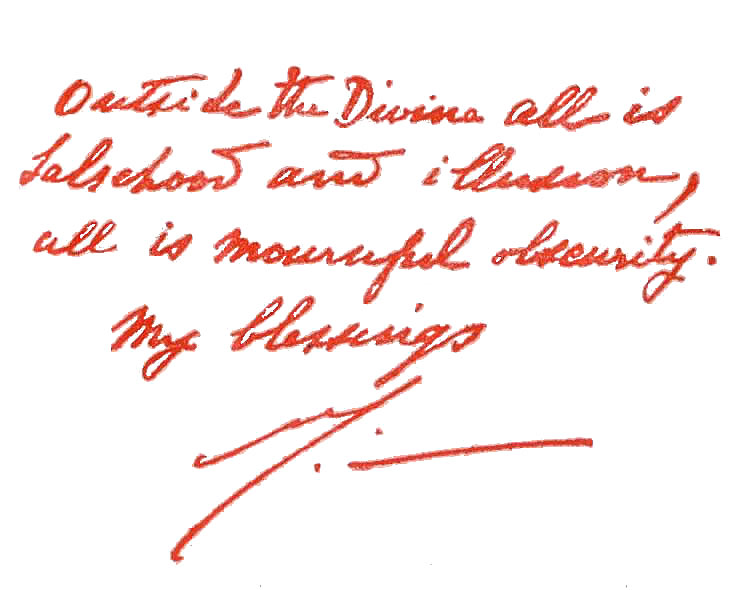 Outside the Divine all is
falsehood and illusion,
all is mournful obscurity.
My blessings